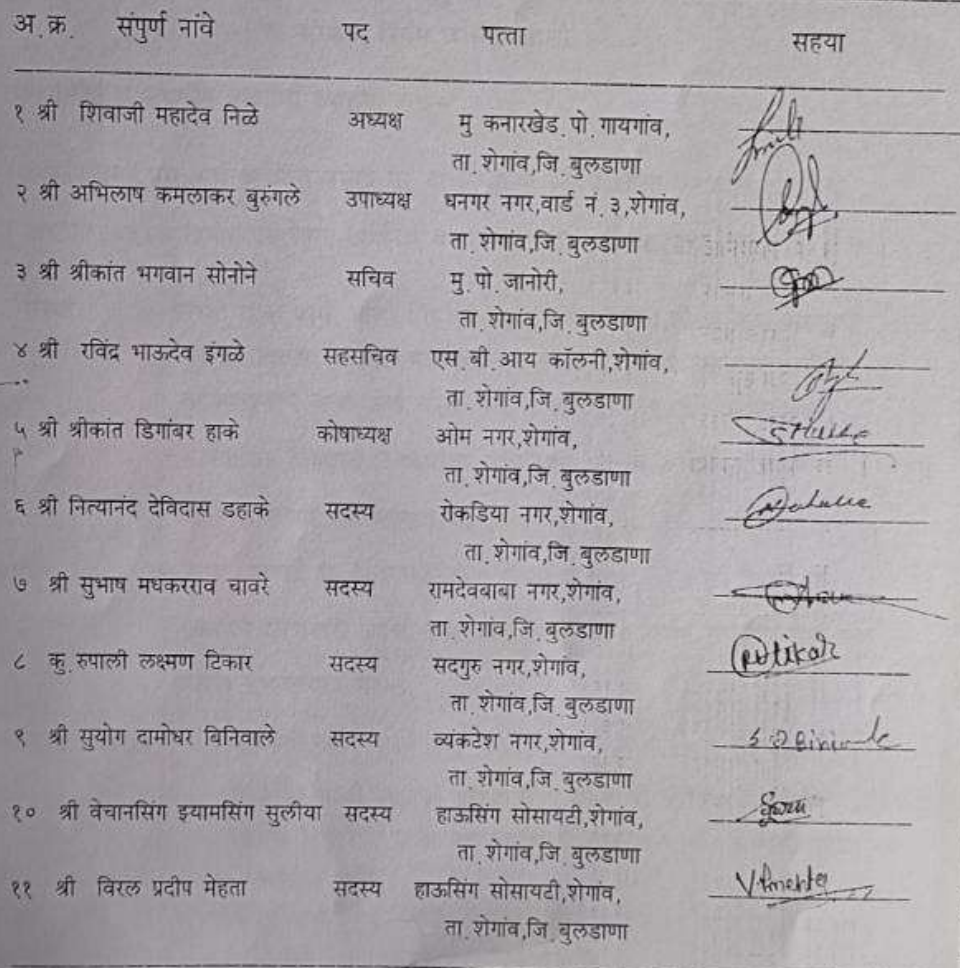 अ.क्र. संपुर्ण नांवे पद पत्ता सहया
१ श्री शिवाजी महादेव निळे अध्यक्ष मु कनारखेड.पो.गायगांव,
ता.शेगांव,जि.बुलडाणा
२ श्री अभिलाष कमलाकर बुरुंगले उपाध्यक्ष धनगर नगर,वार्ड नं.३,शेगांव,
ता.शेगांव,जि.बुलडाणा
३ श्री श्रीकांत भगवान सोनोने सचिव मु.पो.जानोरी,
ता.शेगांव,जि.बुलडाणा
४ श्री रविंद्र भाऊदेव इंगळे सहसचिव एस.बी.आय कॉलनी,शेगांव,
ता.शेगांव,जि.बुलडाणा
५ श्री श्रीकांत डिगांबर हाके कोषाध्यक्ष ओम नगर,शेगांव,
ता.शेगांव,जि.बुलडाणा
६ श्री नित्यानंद देविदास डहाके सदस्य रोकडिया नगर,शेगांव,
ता.शेगांव,जि.बुलडाणा
७ श्री सुभाष मधकरराव चावरे सदस्य रामदेवबाबा नगर,शेगांव,
ता.शेगांव,जि.बुलडाणा
८ कु.रुपाली लक्ष्मण टिकार सदस्य सदगुरु नगर,शेगांव,
ता.शेगांव,जि.बुलडाणा
९ श्री सुयोग दामोधर बिनिवाले सदस्य व्यंकटेश नगर,शेगांव,
ता.शेगांव,जि.बुलडाणा
१० श्री वेचानसिंग झ्यामसिंग सुलीया सदस्य हाऊसिंग सोसायटी,शेगांव,
ता.शेगांव,जि.बुलडाणा
११ श्री विरल प्रदीप मेहता सदस्य हाऊसिंग सोसायटी,शेगांव,
ता.शेगांव,जि.बुलडाणा